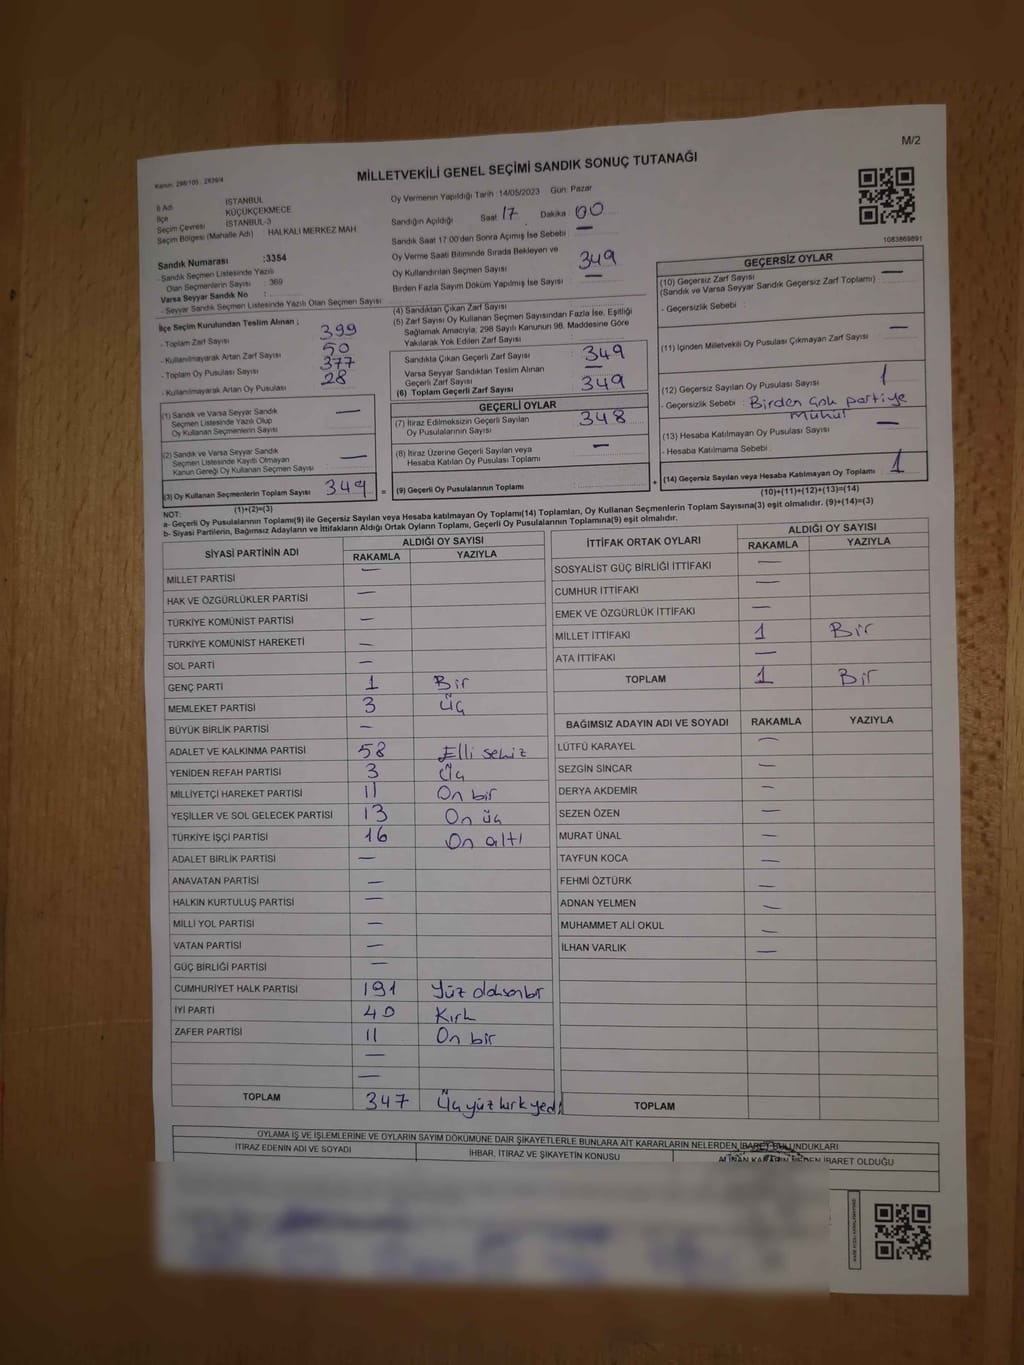 M/2
Kanun: 298/105 , 2839/4
MİLLETVEKİLİ GENEL SEÇİMİ SANDIK SONUÇ TUTANAĞI
İl Adı İSTANBUL
İlçe KÜÇÜKÇEKMECE
Seçim Çevresi İSTANBUL-3
Seçim Bölgesi (Mahalle Adı) HALKALI MERKEZ MAH
Sandık Numarası :3354
- Sandık Seçmen Listesinde Yazılı
Olan Seçmenlerin Sayısı : 369
Varsa Seyyar Sandık No :
- Seyyar Sandık Seçmen Listesinde Yazılı Olan Seçmen Sayısı :
Oy Vermenin Yapıldığı Tarih :14/05/2023 Gün: Pazar
Sandığın Açıldığı Saat 17 Dakika : 00
Sandık Saat 17:00'den Sonra Açımış İse Sebebi : —
Oy Verme Saati Bitiminde Sırada Bekleyen ve
Oy Kullandırılan Seçmen Sayısı 349
Birden Fazla Sayım Döküm Yapılmış İse Sayısı : —
1083869891
İlçe Seçim Kurulundan Teslim Alınan ;
- Toplam Zarf Sayısı 399
- Kullanılmayarak Artan Zarf Sayısı 50
- Toplam Oy Pusulası Sayısı 377
- Kullanılmayarak Artan Oy Pusulası 28
(1) Sandık ve Varsa Seyyar Sandık
Seçmen Listesinde Yazılı Olup
Oy Kullanan Seçmenlerin Sayısı —
(2) Sandık ve Varsa Seyyar Sandık
Seçmen Listesinde Kayıtlı Olmayan
Kanun Gereği Oy Kullanan Seçmen Sayısı —
(3) Oy Kullanan Seçmenlerin Toplam Sayısı 349
(1)+(2)=(3)
(4) Sandıktan Çıkan Zarf Sayısı
(5) Zarf Sayısı Oy Kullanan Seçmen Sayısından Fazla İse, Eşitliği
Sağlamak Amacıyla; 298 Sayılı Kanunun 98. Maddesine Göre
Yakılarak Yok Edilen Zarf Sayısı
Sandıkta Çıkan Geçerli Zarf Sayısı : 349
Varsa Seyyar Sandıktan Teslim Alınan
Geçerli Zarf Sayısı —
(6) Toplam Geçerli Zarf Sayısı 349
GEÇERLİ OYLAR
(7) İtiraz Edilmeksizin Geçerli Sayılan
Oy Pusulalarının Sayısı 348
(8) İtiraz Üzerine Geçerli Sayılan veya
Hesaba Katılan Oy Pusulası Toplamı —
= (9) Geçerli Oy Pusulalarının Toplamı +
GEÇERSİZ OYLAR
(10) Geçersiz Zarf Sayısı —
(Sandık ve Varsa Seyyar Sandık Geçersiz Zarf Toplamı)
- Geçersizlik Sebebi :
(11) İçinden Milletvekili Oy Pusulası Çıkmayan Zarf Sayısı —
(12) Geçersiz Sayılan Oy Pusulası Sayısı 1
- Geçersizlik Sebebi : Birden çok partiye
(13) Hesaba Katılmayan Oy Pusulası Sayısı —
- Hesaba Katılmama Sebebi :
(14) Geçersiz Sayılan veya Hesaba Katılmayan Oy Toplamı : 1
(10)+(11)+(12)+(13)=(14)
NOT:
a- Geçerli Oy Pusulalarının Toplamı(9) ile Geçersiz Sayılan veya Hesaba Katılmayan Oy Toplamı(14) Toplamları, Oy Kullanan Seçmenlerin Toplam Sayısına(3) eşit olmalıdır. (9)+(14)=(3)
b- Siyasi Partilerin, Bağımsız Adayların ve İttifakların Aldığı Ortak Oyların Toplamı, Geçerli Oy Pusulalarının Toplamına(9) eşit olmalıdır.
SİYASİ PARTİNİN ADI ALDIĞI OY SAYISI
RAKAMLA YAZIYLA
MİLLET PARTİSİ —
HAK VE ÖZGÜRLÜKLER PARTİSİ —
TÜRKİYE KOMÜNİST PARTİSİ —
TÜRKİYE KOMÜNİST HAREKETİ —
SOL PARTİ —
GENÇ PARTİ 1 Bir
MEMLEKET PARTİSİ 3 Üç
BÜYÜK BİRLİK PARTİSİ —
ADALET VE KALKINMA PARTİSİ 58 Elli sekiz
YENİDEN REFAH PARTİSİ 3 Üç
MİLLİYETÇİ HAREKET PARTİSİ 11 On bir
YEŞİLLER VE SOL GELECEK PARTİSİ 13 On üç
TÜRKİYE İŞÇİ PARTİSİ 16 On altı
ADALET BİRLİK PARTİSİ —
ANAVATAN PARTİSİ —
HALKIN KURTULUŞ PARTİSİ —
MİLLİ YOL PARTİSİ —
VATAN PARTİSİ —
GÜÇ BİRLİĞİ PARTİSİ —
CUMHURİYET HALK PARTİSİ 191 Yüz doksanbir
İYİ PARTİ 40 Kırk
ZAFER PARTİSİ 11 On bir
—
—
TOPLAM 347 Üçyüz kırkyedi
İTTİFAK ORTAK OYLARI ALDIĞI OY SAYISI
RAKAMLA YAZIYLA
SOSYALİST GÜÇ BİRLİĞİ İTTİFAKI —
CUMHUR İTTİFAKI —
EMEK VE ÖZGÜRLÜK İTTİFAKI —
MİLLET İTTİFAKI 1 Bir
ATA İTTİFAKI —
TOPLAM 1 Bir
BAĞIMSIZ ADAYIN ADI VE SOYADI RAKAMLA YAZIYLA
LÜTFÜ KARAYEL —
SEZGİN SİNCAR —
DERYA AKDEMİR —
SEZEN ÖZEN —
MURAT ÜNAL —
TAYFUN KOCA —
FEHMİ ÖZTÜRK —
ADNAN YELMEN —
MUHAMMET ALİ OKUL —
İLHAN VARLIK —
TOPLAM
OYLAMA İŞ VE İŞLEMLERİNE VE OYLARIN SAYIM DÖKÜMÜNE DAİR ŞİKAYETLERLE BUNLARA AİT KARARLARIN NELERDEN İBARET BULUNDUKLARI
İTİRAZ EDENİN ADI VE SOYADI İHBAR, İTİRAZ VE ŞİKAYETİN KONUSU ALINAN KARARIN NEDEN İBARET OLDUĞU